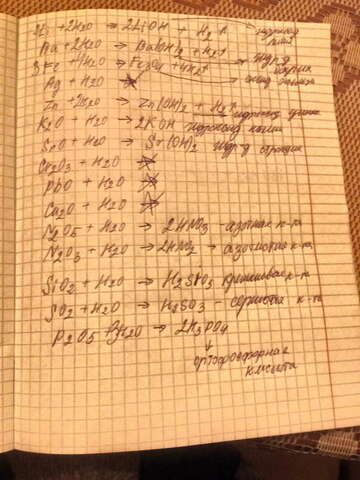 Li + 2H2O → 2LiOH + H2↑ гидроксид лития
Ba + 2H2O → Ba(OH)2 + H2↑
3Fe + 4H2O → Fe3O4 + 4H2↑
Ag + H2O
Zn + 2H2O → Zn(OH)2 + H2↑ гидроксид цинка
K2O + H2O → 2KOH гидроксид калия
SrO + H2O → Sr(OH)2 гидр-д стронция
Cr2O3 + H2O
PbO + H2O
Cu2O + H2O
N2O5 + H2O → 2HNO3 - азотная к-та
N2O3 + H2O → 2HNO2 → азотистая к-та
SiO2 + H2O → H2SiO3 кремниевая к-та
SO2 + H2O → H2SO3 - сернистая к-та
P2O5 + 3H2O → 2H3PO4
↓
ортофосфорная
кислота